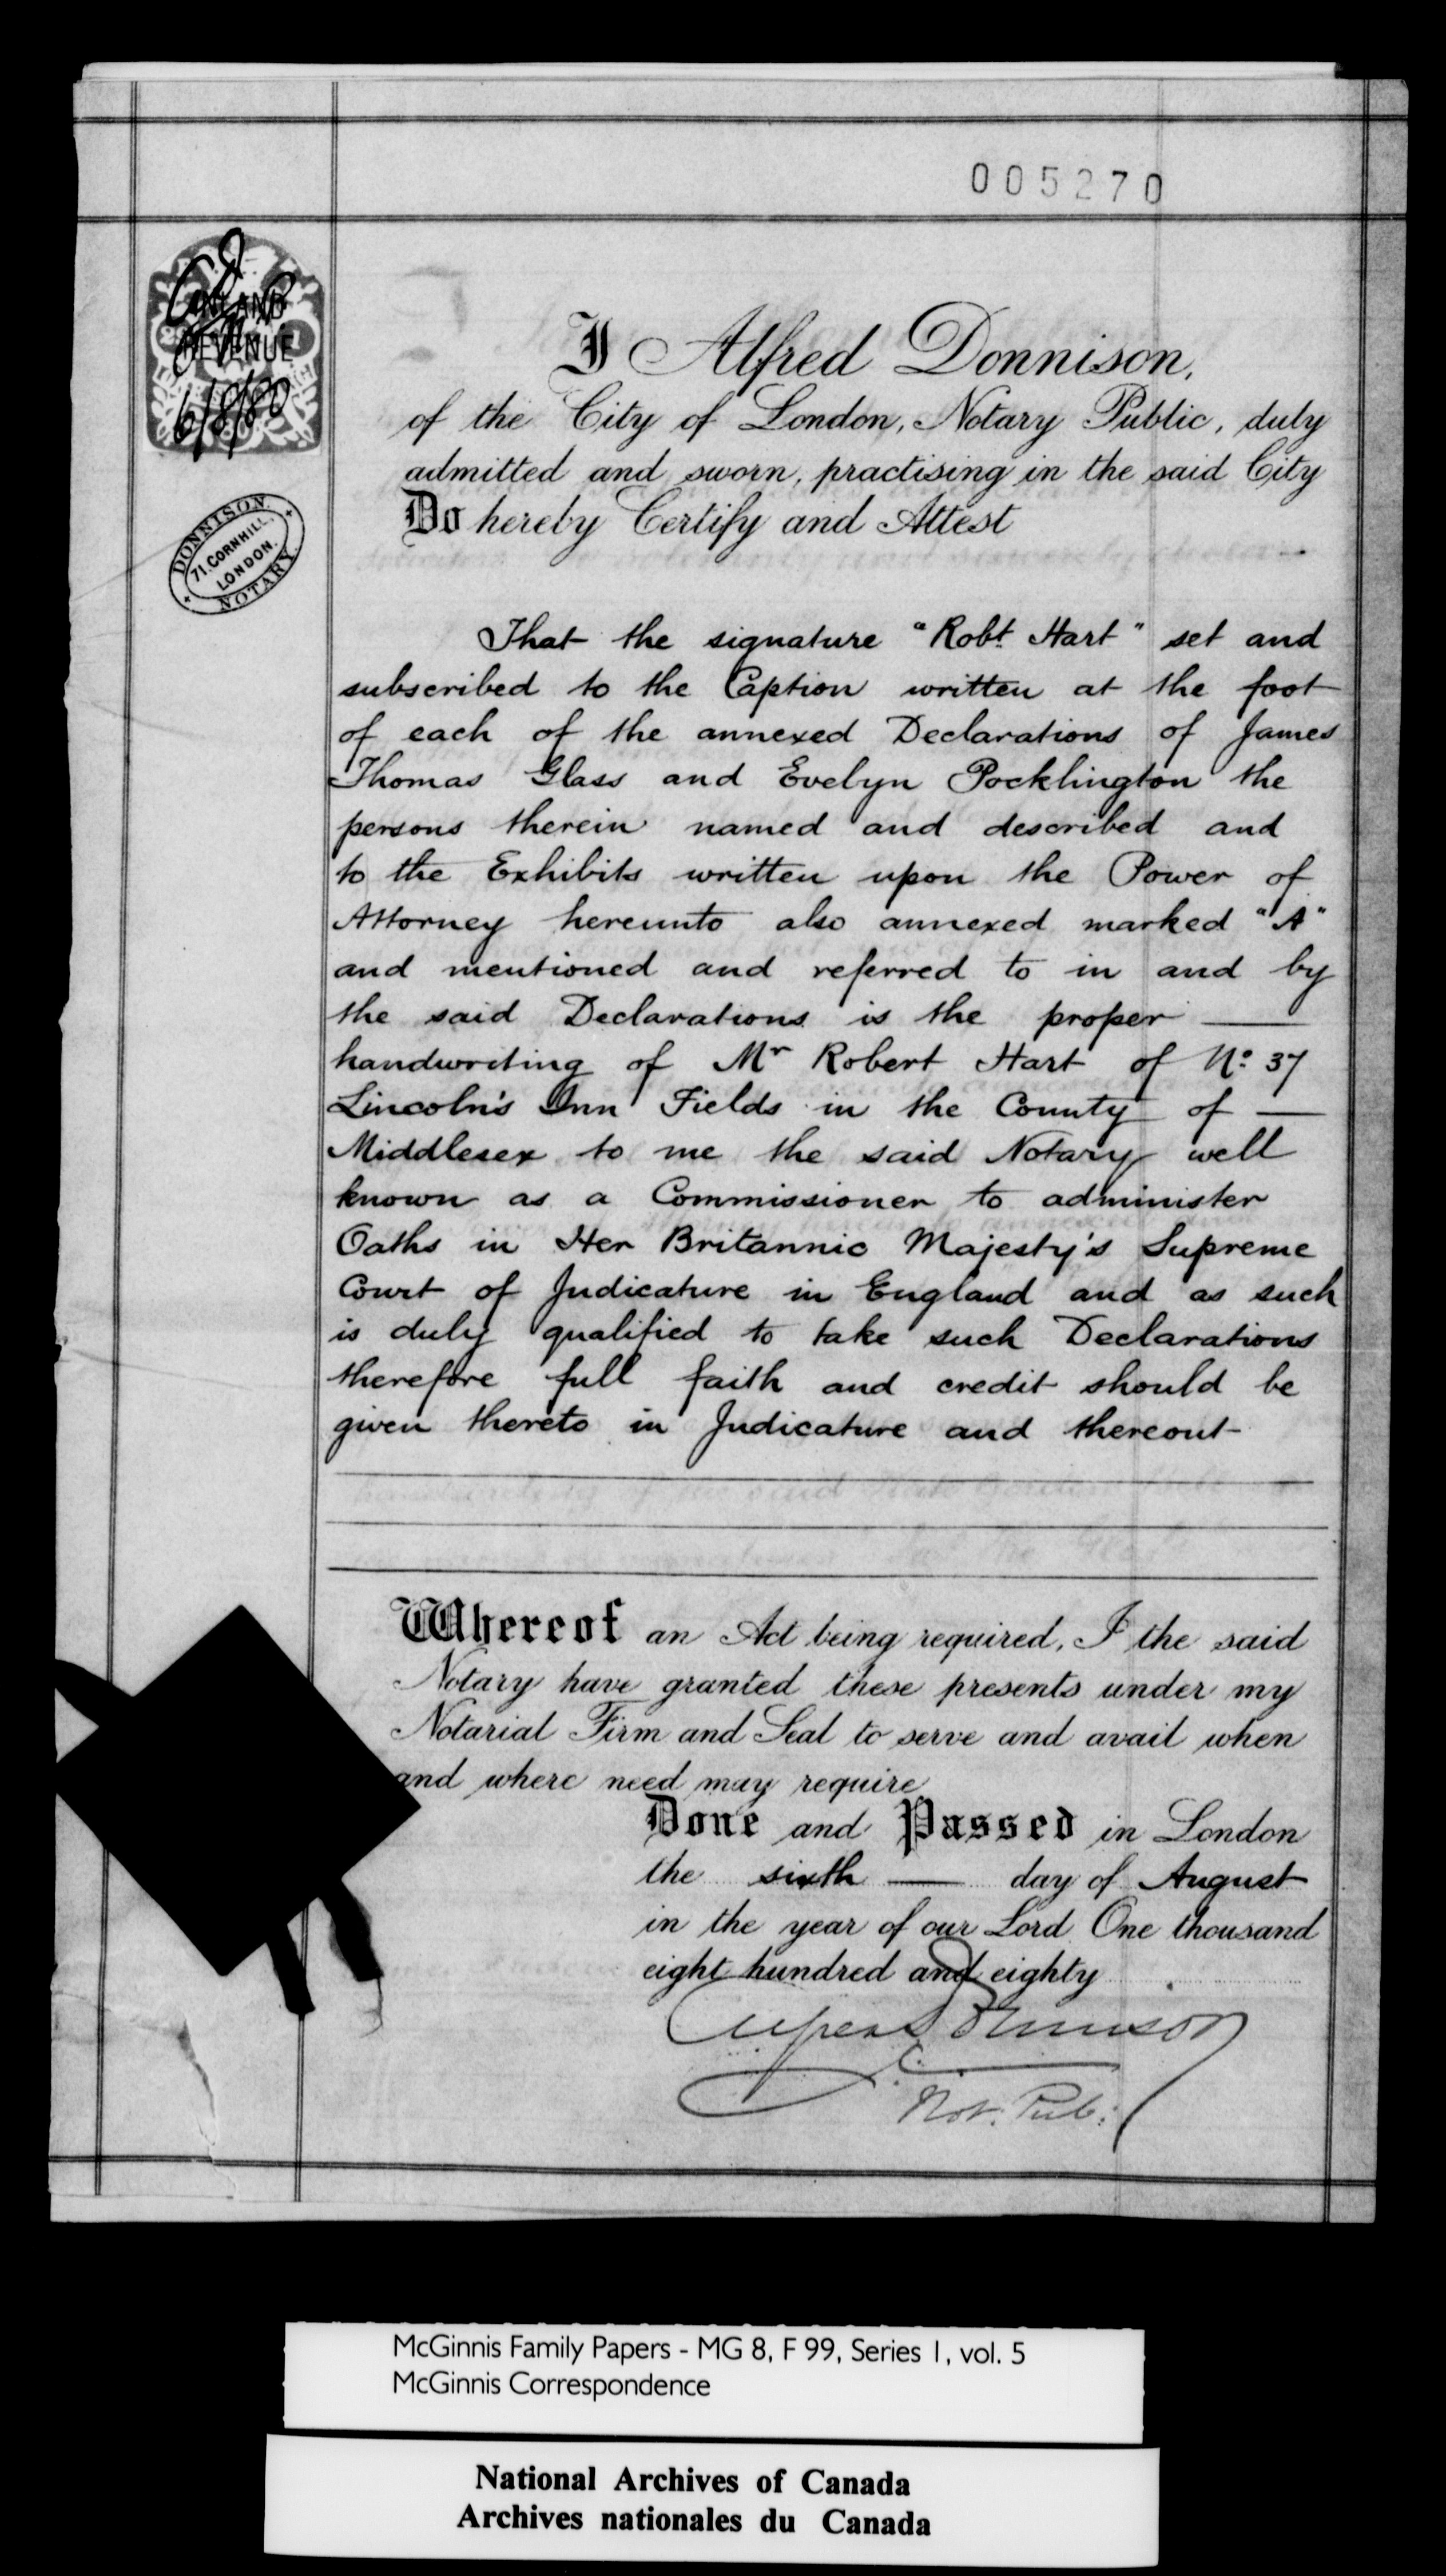 005270
INLAND
REVENUE
6/8/80
DONNISON
71. CORNHILL.
LONDON.
NOTARY
I Alfred Donnison,
of the City of London, Notary Public, duly
admitted and sworn, practising in the said City
Do hereby Certify and Attest
That the signature "Robt. Hart" set and
subscribed to the Caption written at the foot
of each of the annexed Declarations of James
Thomas Glass and Evelyn Pocklington the
persons therein named and described and
to the Exhibits written upon the Power of
Attorney hereunto also annexed marked "A"
and mentioned and referred to in and by
the said Declarations is the proper
handwriting of Mr Robert Hart of No. 37
Lincoln's Inn Fields in the County of
Middlesex to me the said Notary well
known as a Commissioner to administer
Oaths in Her Britannic Majesty's Supreme
Court of Judicature in England and as such
is duly qualified to take such Declarations
therefore full faith and credit should be
given thereto in Judicature and thereout
Whereof an Act being required, I the said
Notary have granted these presents under my
Notarial Firm and Seal to serve and avail when
and where need may require
Done and Passed in London
the sixth day of August
in the year of our Lord One thousand
eight hundred and eighty
Alfred Donnison
Not. Pub:
McGinnis Family Papers - MG 8, F 99, Series 1, vol. 5
McGinnis Correspondence
National Archives of Canada
Archives nationales du Canada